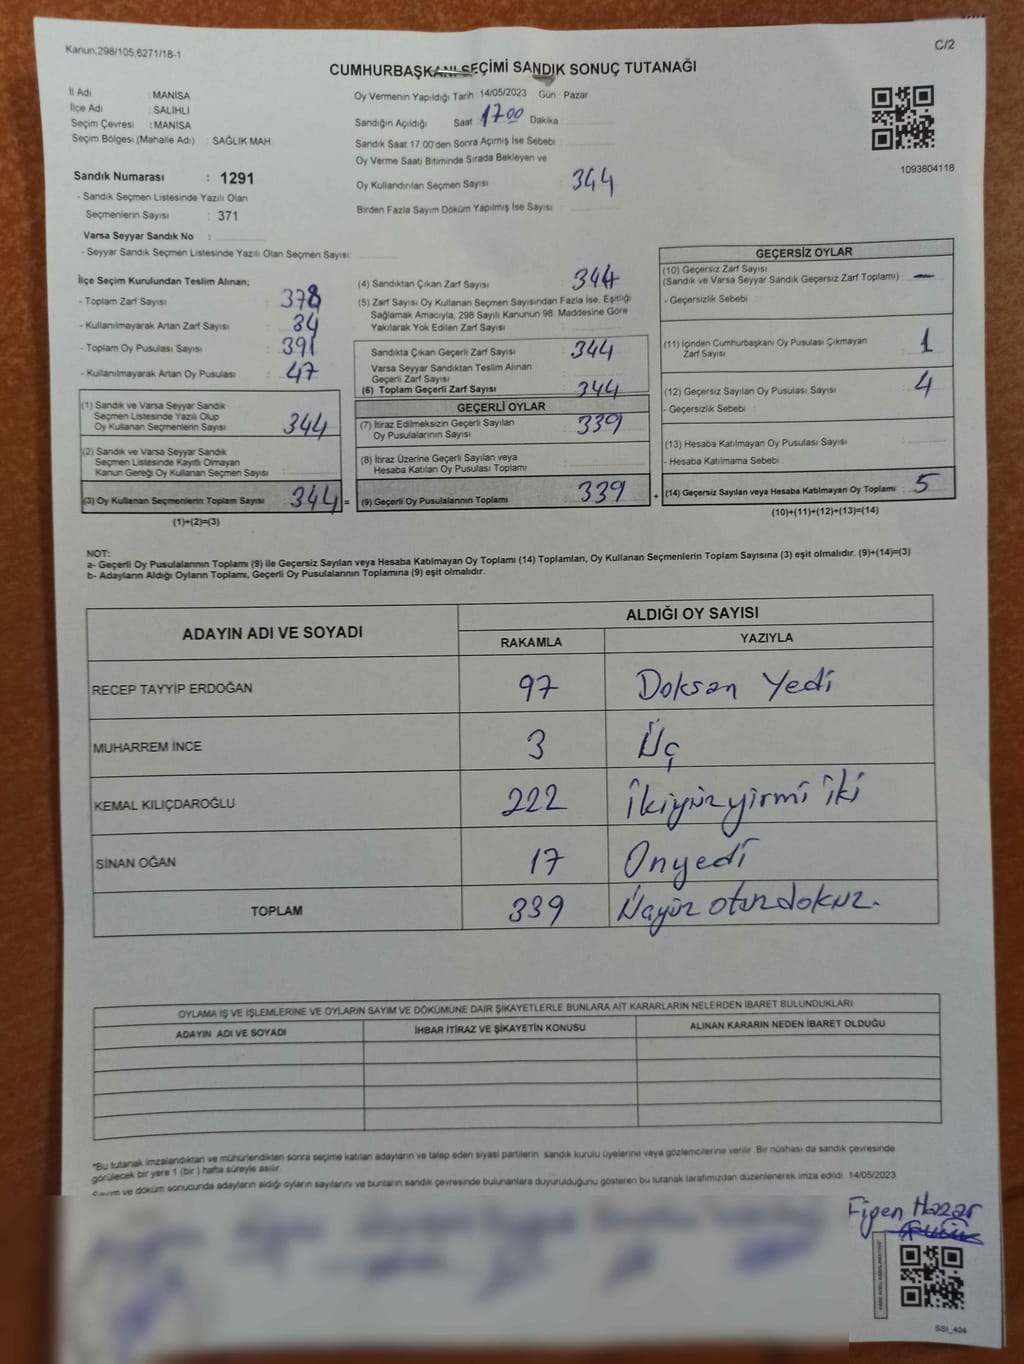 Kanun;298/105,6271/18-1
C/2
CUMHURBAŞKANI SEÇİMİ SANDIK SONUÇ TUTANAĞI
İl Adı MANİSA
İlçe Adı : SALİHLİ
Seçim Çevresi : MANİSA
Seçim Bölgesi (Mahalle Adı) : SAĞLIK MAH.
Sandık Numarası : 1291
- Sandık Seçmen Listesinde Yazılı Olan
Seçmenlerin Sayısı : 371
Varsa Seyyar Sandık No :
- Seyyar Sandık Seçmen Listesinde Yazılı Olan Seçmen Sayısı:
Oy Vermenin Yapıldığı Tarih :14/05/2023 Gün : Pazar
Sandığın Açıldığı Saat 17 00 Dakika
Sandık Saat 17.00'den Sonra Açımış İse Sebebi :
Oy Verme Saati Bitiminde Sırada Bekleyen ve
Oy Kullandırılan Seçmen Sayısı : 344
Birden Fazla Sayım Döküm Yapılmış İse Sayısı :
1093804118
İlçe Seçim Kurulundan Teslim Alınan;
- Toplam Zarf Sayısı : 378
- Kullanılmayarak Artan Zarf Sayısı : 34
- Toplam Oy Pusulası Sayısı : 391
- Kullanılmayarak Artan Oy Pusulası : 47
(1) Sandık ve Varsa Seyyar Sandık
Seçmen Listesinde Yazılı Olup
Oy Kullanan Seçmenlerin Sayısı : 344
(2) Sandık ve Varsa Seyyar Sandık
Seçmen Listesinde Kayıtlı Olmayan
Kanun Gereği Oy Kullanan Seçmen Sayısı :
(3) Oy Kullanan Seçmenlerin Toplam Sayısı : 344 =
(1)+(2)=(3)
(4) Sandıktan Çıkan Zarf Sayısı : 344
(5) Zarf Sayısı Oy Kullanan Seçmen Sayısından Fazla İse, Eşitliği
Sağlamak Amacıyla; 298 Sayılı Kanunun 98. Maddesine Göre
Yakılarak Yok Edilen Zarf Sayısı :
Sandıkta Çıkan Geçerli Zarf Sayısı : 344
Varsa Seyyar Sandıktan Teslim Alınan
Geçerli Zarf Sayısı :
(6) Toplam Geçerli Zarf Sayısı : 344
GEÇERLİ OYLAR
(7) İtiraz Edilmeksizin Geçerli Sayılan
Oy Pusulalarının Sayısı : 339
(8) İtiraz Üzerine Geçerli Sayılan veya
Hesaba Katılan Oy Pusulası Toplamı :
(9) Geçerli Oy Pusulalarının Toplamı : 339 +
GEÇERSİZ OYLAR
(10) Geçersiz Zarf Sayısı
(Sandık ve Varsa Seyyar Sandık Geçersiz Zarf Toplamı) : —
- Geçersizlik Sebebi :
(11) İçinden Cumhurbaşkanı Oy Pusulası Çıkmayan
Zarf Sayısı : 1
(12) Geçersiz Sayılan Oy Pusulası Sayısı : 4
- Geçersizlik Sebebi :
(13) Hesaba Katılmayan Oy Pusulası Sayısı :
- Hesaba Katılmama Sebebi :
(14) Geçersiz Sayılan veya Hesaba Katılmayan Oy Toplamı : 5
(10)+(11)+(12)+(13)=(14)
NOT:
a- Geçerli Oy Pusulalarının Toplamı (9) ile Geçersiz Sayılan veya Hesaba Katılmayan Oy Toplamı (14) Toplamları, Oy Kullanan Seçmenlerin Toplam Sayısına (3) eşit olmalıdır. (9)+(14)=(3)
b- Adayların Aldığı Oyların Toplamı, Geçerli Oy Pusulalarının Toplamına (9) eşit olmalıdır.
ADAYIN ADI VE SOYADI ALDIĞI OY SAYISI
RAKAMLA YAZIYLA
RECEP TAYYİP ERDOĞAN 97 Doksan Yedi
MUHARREM İNCE 3 Üç
KEMAL KILIÇDAROĞLU 222 İkiyüzyirmi iki
SİNAN OĞAN 17 Onyedi
TOPLAM 339 Üçyüz otuzdokuz.
OYLAMA İŞ VE İŞLEMLERİNE VE OYLARIN SAYIM VE DÖKÜMÜNE DAİR ŞİKAYETLERLE BUNLARA AİT KARARLARIN NELERDEN İBARET BULUNDUKLARI
ADAYIN ADI VE SOYADI İHBAR İTİRAZ VE ŞİKAYETİN KONUSU ALINAN KARARIN NEDEN İBARET OLDUĞU
*Bu tutanak imzalandıktan ve mühürlendikten sonra seçime katılan adayların ve talep eden siyasi partilerin sandık kurulu üyelerine veya gözlemcilerine verilir. Bir nüshası da sandık çevresinde
görülecek bir yere 1 (bir ) hafta süreyle asılır.
Sayım ve döküm sonucunda adayların aldığı oyların sayılarını ve bunların sandık çevresinde bulunanlara duyurulduğunu gösteren bu tutanak tarafımızdan düzenlenerek imza edildi. 14/05/2023
SSI_404